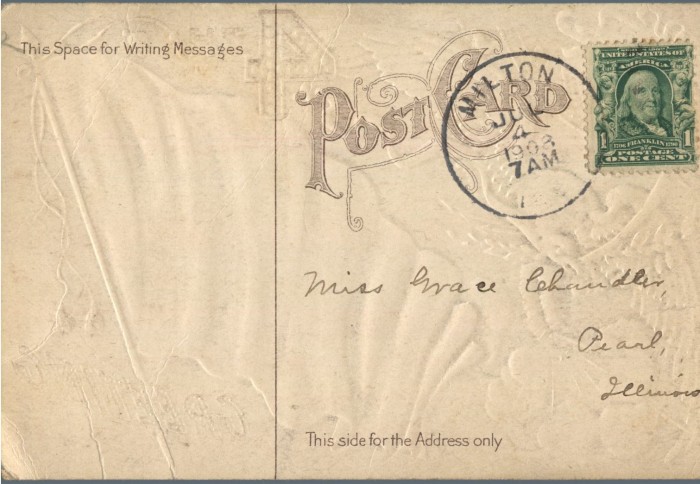 This Space for Writing Messages
POST CARD
MILTON
JUL
4
1908
7AM
UNITED STATES OF
AMERICA
1706 FRANKLIN 1790
1
POSTAGE
ONE CENT
Miss Grace Chandler,
Pearl,
Illinois
This side for the Address only